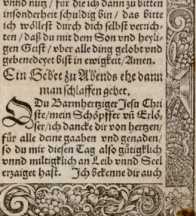 vnnd nutz / für die ich dann zu bitten
vnsonderheit schuldig bin / das bitte
ich wöllest durch dich selbst verrich-
ten / daß du mit dem Son vnd heyli-
gen Geist / vber alle ding gelobt vnd
gebenedeyet bist in ewigkeit / Amen.
Ein Gebet zu Abends ehe dann
man schlaffen gehet.
O Du Barmhertziger Jesu Chri
ste / mein Schöpffer vñ Erlö,
ser / ich dancke dir von hertzen /
für alle deine gaaben vnd genaden /
so du mir diesen Tag also gütigklich
vnnd miltigklich an Leib vnnd Seel
erzaiget hast. Ich bekenne dir auch